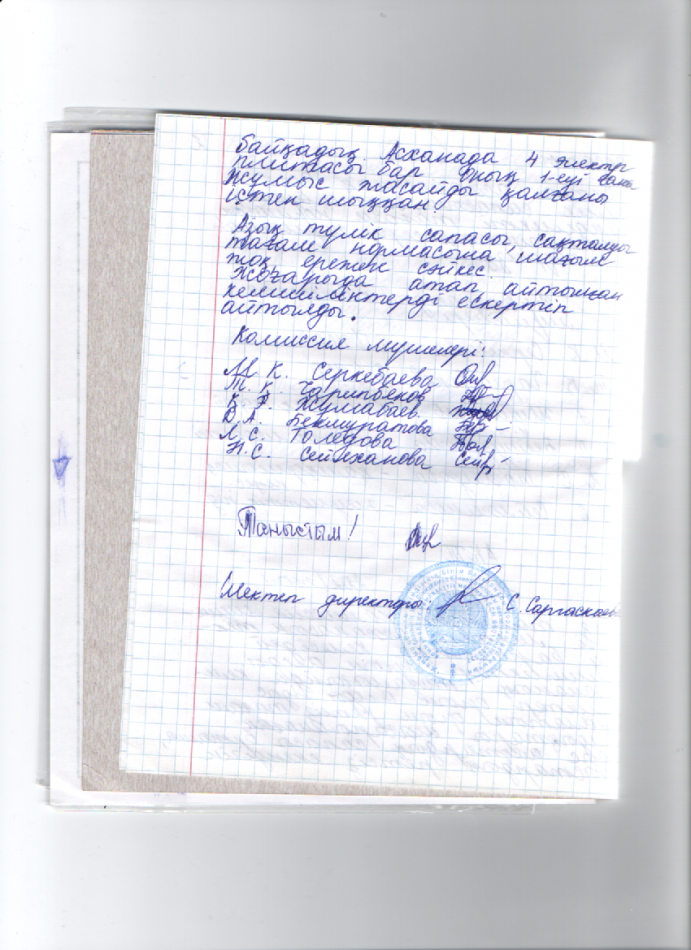 байқадық. Асханада 4 электр
плитасы бар оның 1-еуі ғана
жұмыс жасайды қалғаны
істен шыққан.
Азық түлік сапасы, сақталуы
тағам нормасына, шағым
жоқ ережеге сәйкес.
Жоғарыда атап айтылған
кемшіліктерді ескертіп
айтылды.
Комиссия мүшелері:
М. К. Серкебаева
Т. К. Гарипбеков
К. Жумабаев
Б. А. Бекмуратова
Л. С. Толедова
Н. С. Сейтханова
Таныстым!
Мектеп директоры: С. Саргаскаев